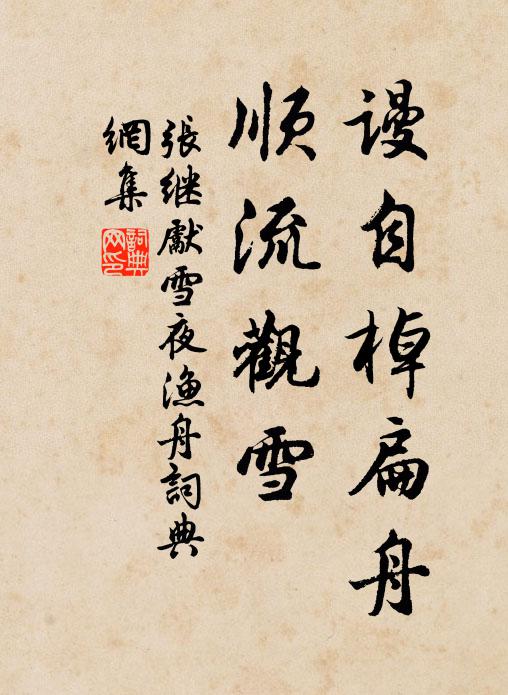 謾自棹扁舟
順流觀雪
張继獻雪夜漁舟詞典
網集
詞典
网印